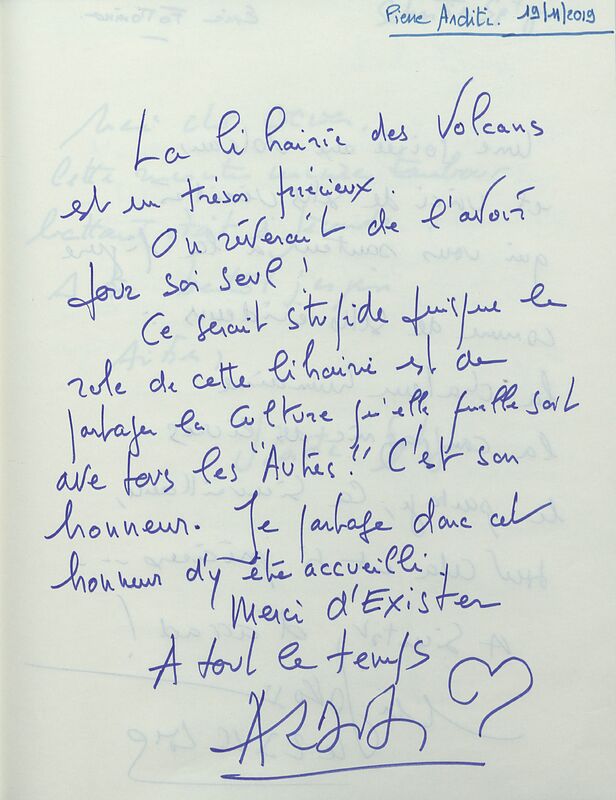 Pierre Arditi. 19/11/2019
La librairie des Volcans
est un trésor précieux.
On rêverait de l'avoir
pour soi seul !
Ce serait stupide puisque le
role de cette librairie est de
partager la Culture qu'elle quelle soit
avec tous les "Autres!" C'est son
honneur. Je partage donc cet
honneur d'y être accueilli.
Merci d'Exister
A tout le temps